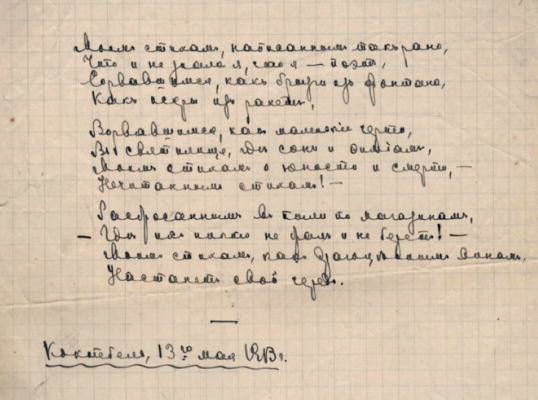 Моимъ стихамъ, написаннымъ такъ рано,
Что и не знала я, что я — поэтъ,
Сорвавшимся, какъ брызги изъ фонтана,
Какъ искры изъ ракетъ,
Ворвавшимся, какъ маленькіе черти,
Въ святилище, гдѣ сонъ и ѳиміамъ,
Моимъ стихамъ о юности и смерти, —
Нечитаннымъ стихамъ! —
Разбросаннымъ въ пыли по магазинамъ,
— Гдѣ ихъ никто не бралъ и не беретъ! —
Моимъ стихамъ, какъ драгоцѣннымъ винамъ,
Настанетъ свой чередъ.
Коктебель, 13го мая 1913г.